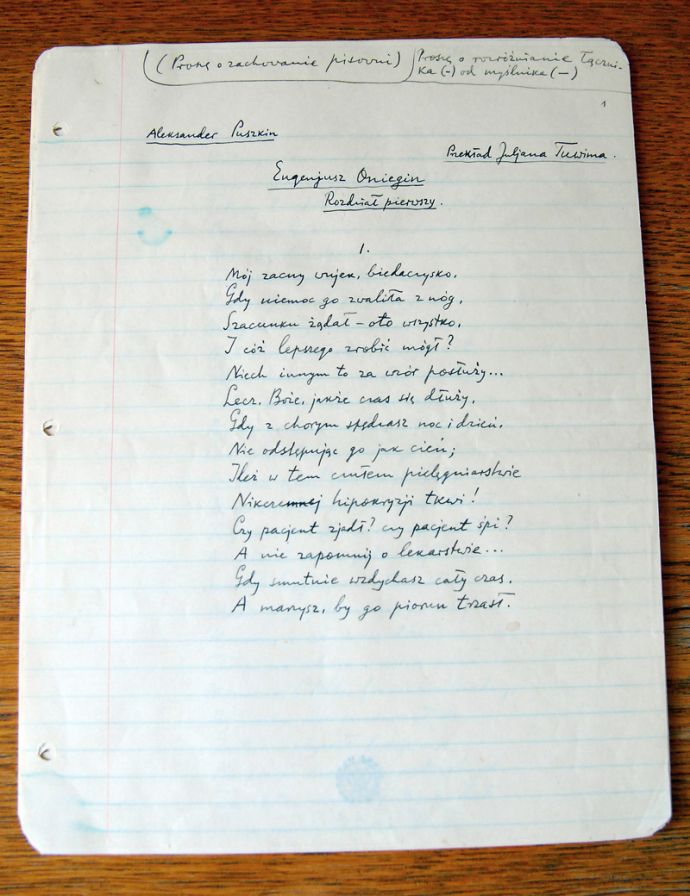 (Proszę o zachowanie pisowni)
Proszę o rozróżnianie łączni-
ka (-) od myślnika (—)
1
Aleksander Puszkin
Przekład Juljana Tuwima.
Eugenjusz Oniegin
Rozdział pierwszy.
1.
Mój zacny wujek, biedaczysko,
Gdy niemoc go zwaliła z nóg,
Szacunku żądał — oto wszystko,
I cóż lepszego zrobić mógł?
Niech innym to za wzór posłuży...
Lecz, Boże, jakże czas się dłuży,
Gdy z chorym spędzasz noc i dzień,
Nie odstępując go jak cień;
Ileż w tem czułem pielęgniarstwie
Nikczemnej hipokryzji tkwi!
Czy pacjent zjadł? czy pacjent śpi?
A nie zapomnij o lekarstwie...
Gdy smutnie wzdychasz cały czas,
A marzysz, by go piorun trzasł.